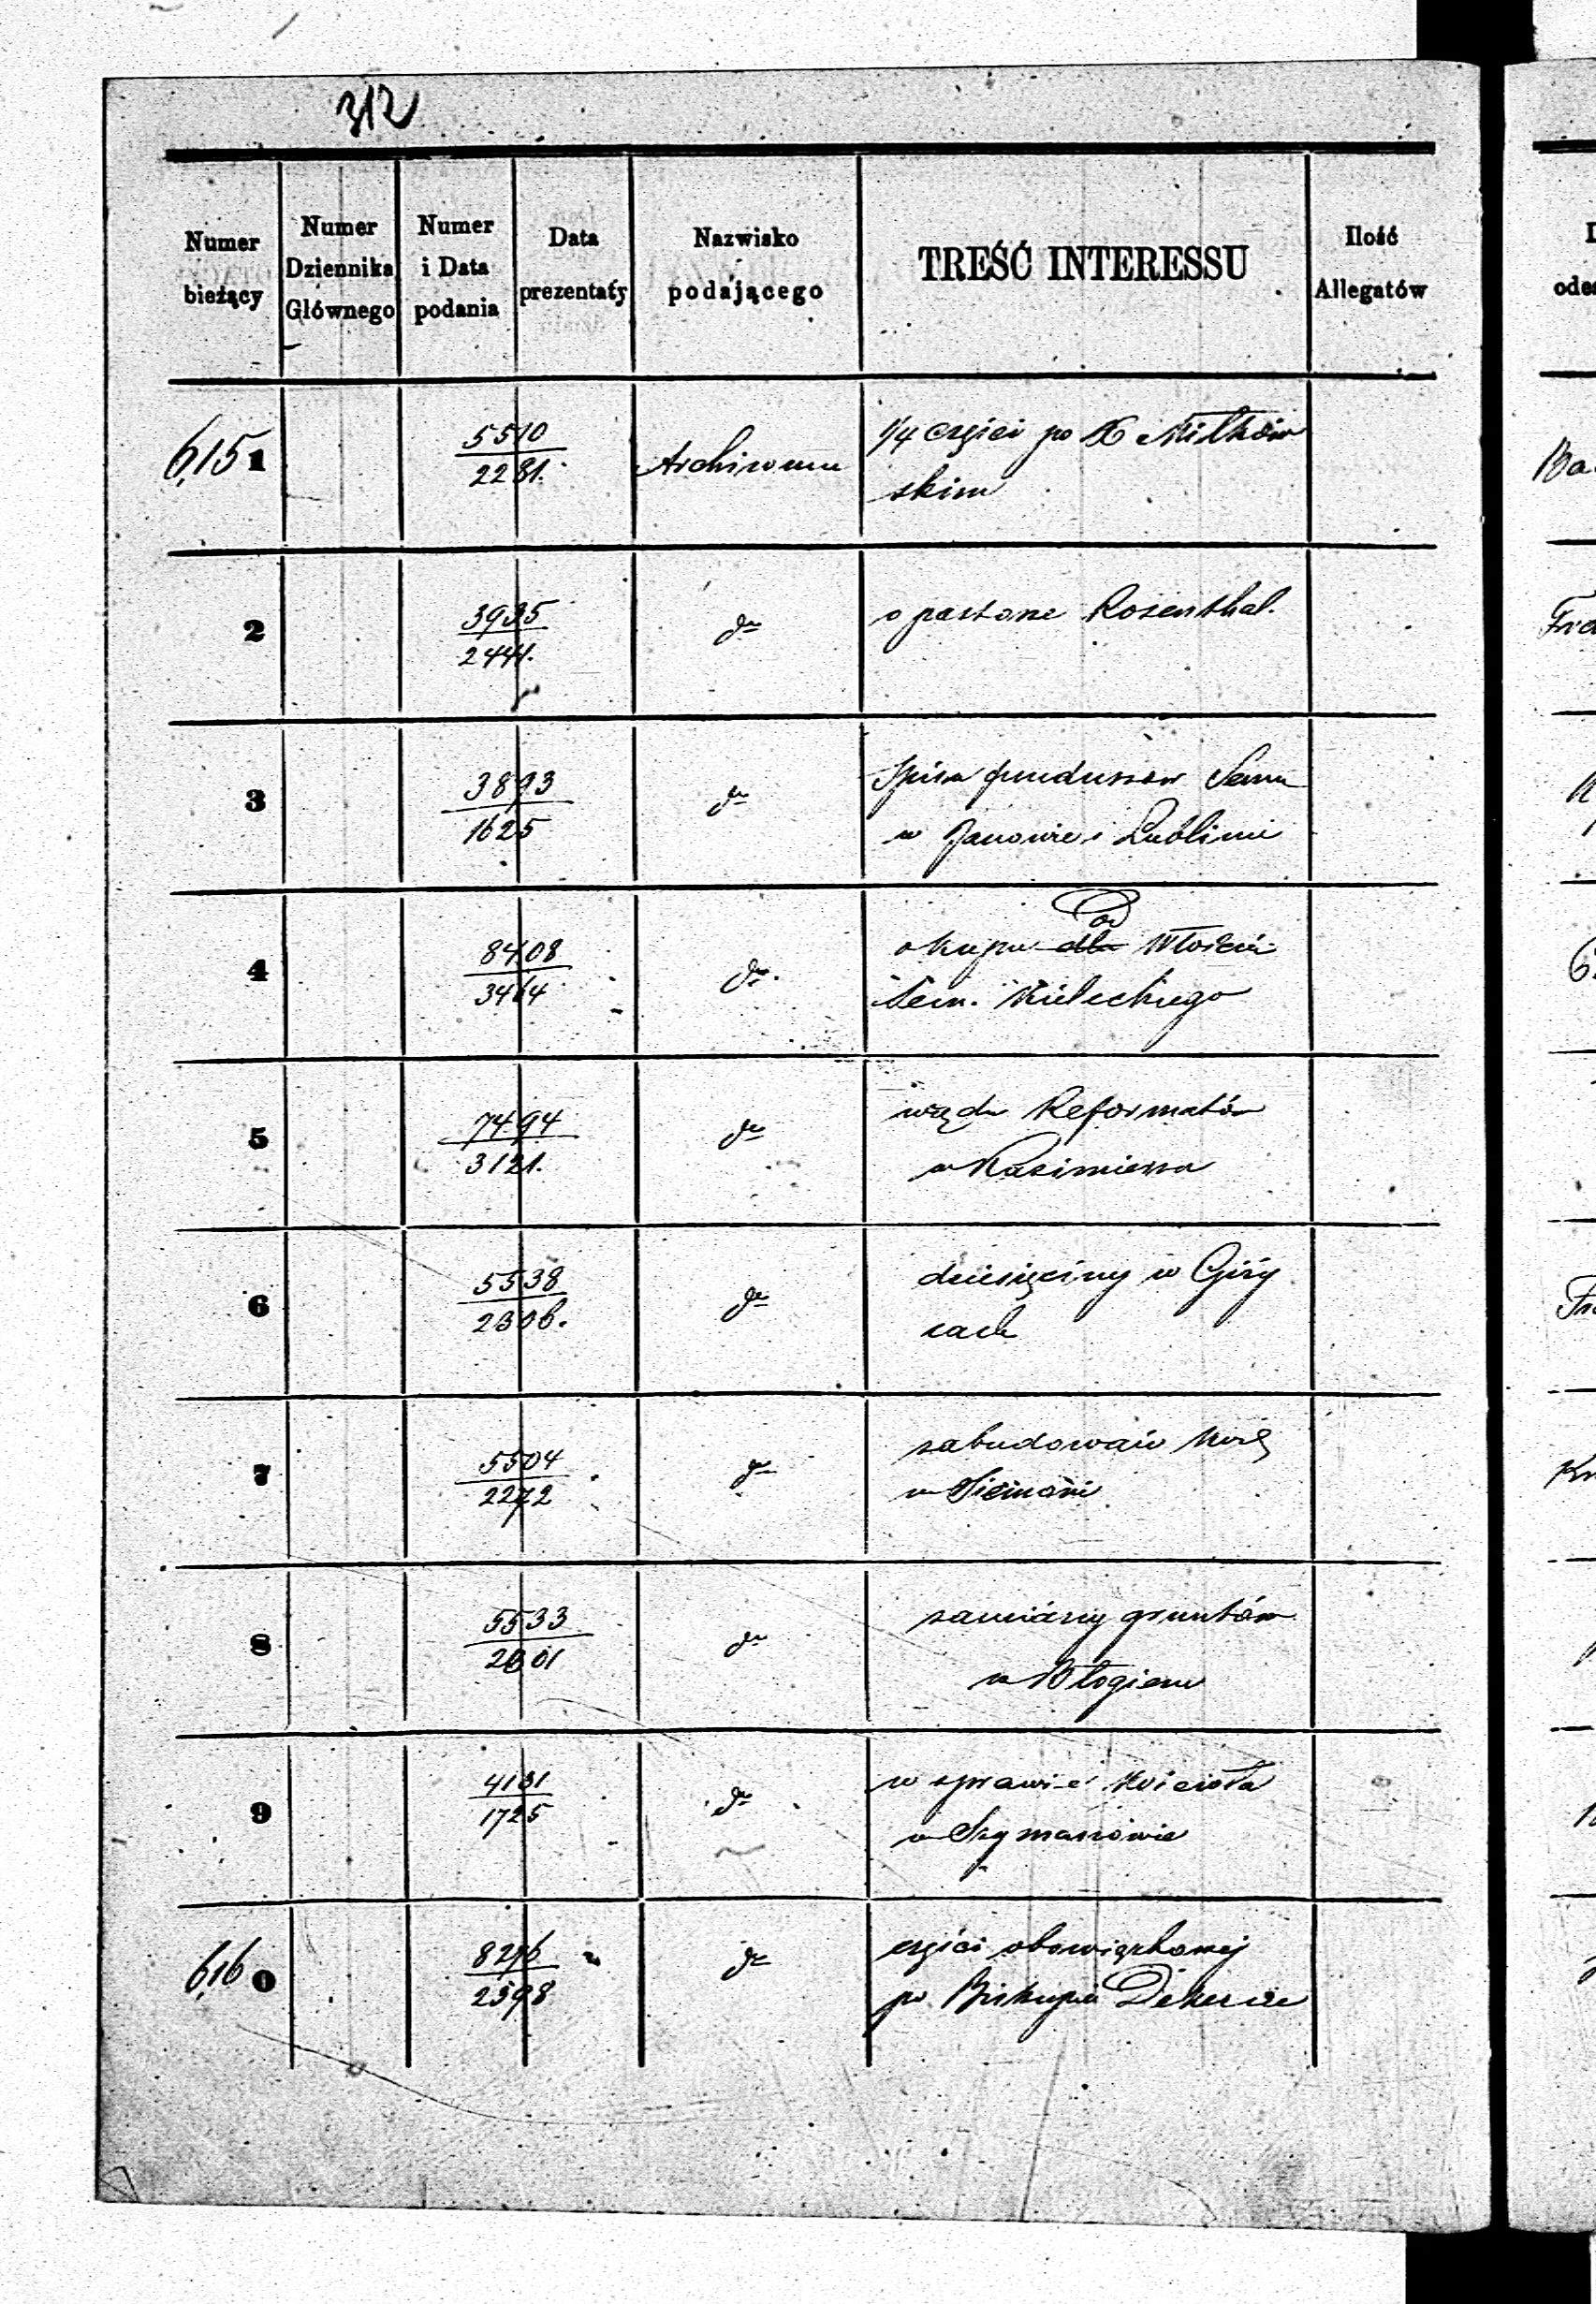 312
Numer bieżący
Numer Dziennika Głównego
Numer i Data podania
Data prezentaty
Nazwisko podającego
TREŚĆ INTERESSU
Ilość Allegatów
6,151
5510
2281.
Archiwum
1/4 części po X Miłkow
skim
2
3935
2441.
do
o pastorze Rosenthal.
3
3893
1625
do
Spisu funduszow Sem
w Janowie i Lublinie
4
8408
3464
do.
okupu od dla Włościa
Sem. Kieleckiego
5
7494
3121.
do
wzgdm Reformatów
w Kazimierzu
6
5538
2306.
do
dziesięciny w Giży
cach
7
5504
2272
do
zabudowań
w
8
5533
2301
do
zamiany gruntów
w Błogiem
9
4131
1725
do
w sprawie Kościoła
w Szymanowie
6,160
8296
2398
do
części obowiązkowej
po Biskupie Dekercie